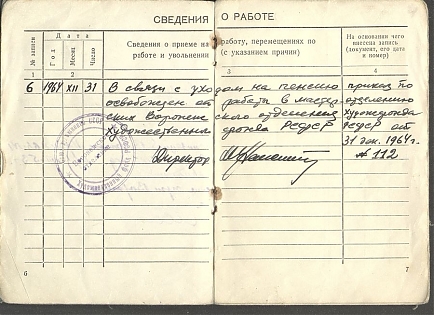 СВЕДЕНИЯ О РАБОТЕ
№ записи
Дата
Год
Месяц
Число
Сведения о приеме на работу, перемещениях по
работе и увольнении (с указанием причин)
На основании чего
внесена запись
(документ, его дата
и номер)
1 2 3 4
6 1964 XII 31 В связи с уходом на пенсию приказ по
освобожден от работы в мастер отделению
ских Воронежского отделения художфонда
Художественного фонда РСФСР РСФСР от
31 дек. 1964 г.
Директор № 112
6 7